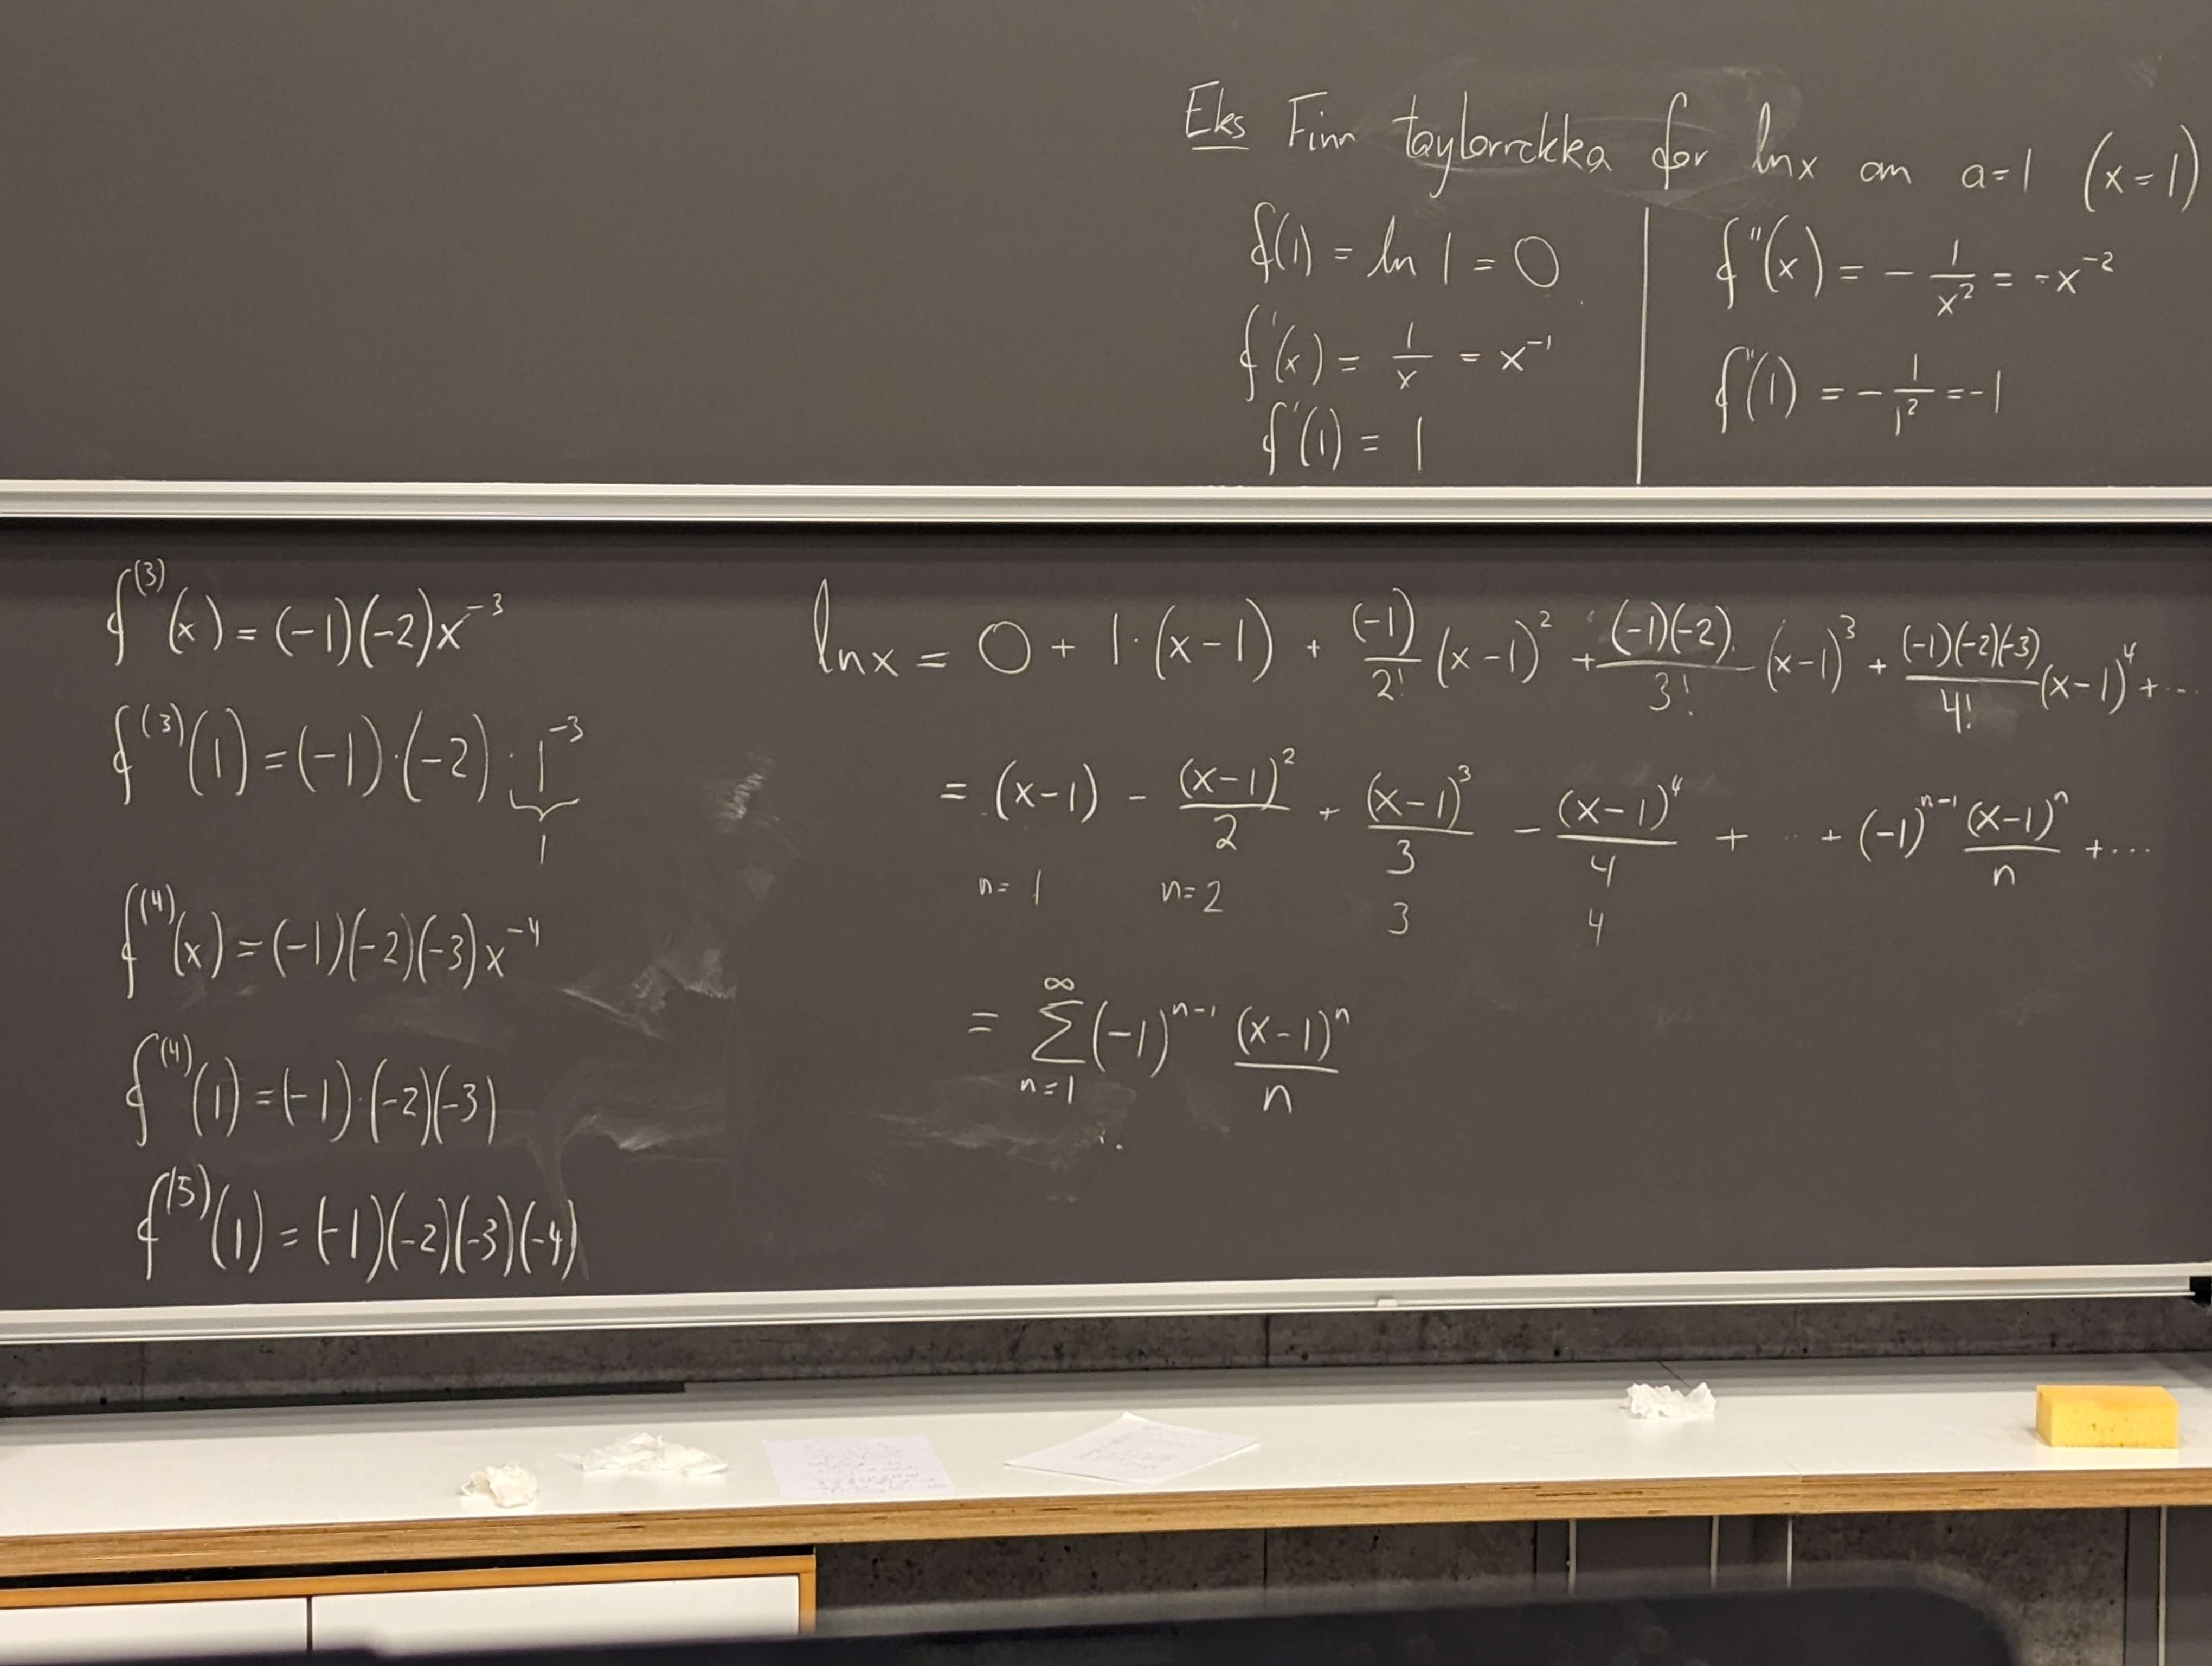 Eks Finn taylorrekka for ln x om a=1 (x=1)
f(1) = ln 1 = 0
f'(x) = 1/x = x^-1
f'(1) = 1
f''(x) = - 1/x^2 = -x^-2
f''(1) = - 1/1^2 = -1
f^(3)(x) = (-1)(-2)x^-3
f^(3)(1) = (-1)·(-2)·1^-3
1
f^(4)(x) = (-1)(-2)(-3)x^-4
f^(4)(1) = (-1)·(-2)(-3)
f^(5)(1) = (-1)(-2)(-3)(-4)
ln x = 0 + 1·(x-1) + (-1)/2! (x-1)^2 + (-1)(-2)/3! (x-1)^3 + (-1)(-2)(-3)/4! (x-1)^4 + ...
= (x-1) - (x-1)^2/2 + (x-1)^3/3 - (x-1)^4/4 + ... + (-1)^(n-1) (x-1)^n/n + ...
n=1 n=2 3 4
= ∑_{n=1}^{∞} (-1)^(n-1) (x-1)^n/n